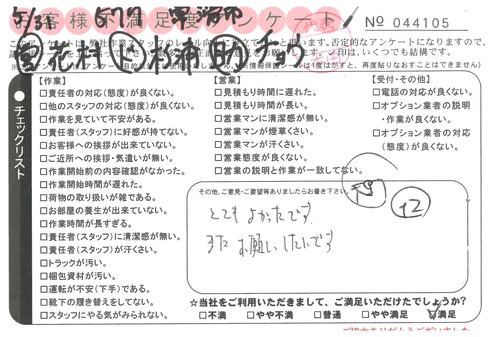 お客様満足度アンケート
№ 044105
チェックリスト
【作業】
□責任者の対応(態度)が良くない。
□他のスタッフの対応(態度)が良くない。
□作業を見ていて不安がある。
□責任者(スタッフ)に好感が持てない。
□お客様への挨拶が出来ていない。
□ご近所への挨拶・気遣いが無い。
□作業開始前の内容確認がなかった。
□作業開始時間が遅れた。
□荷物の取り扱いが雑である。
□お部屋の養生が出来ていない。
□作業時間が長すぎる。
□責任者(スタッフ)に清潔感が無い。
□責任者(スタッフ)が汗くさい。
□トラックが汚い。
□梱包資材が汚い。
□運転が不安(下手)である。
□靴下の履き替えをしてない。
□スタッフにやる気がみられない。
【営業】
□見積もり時間に遅れた。
□見積もり時間が長い。
□営業マンに清潔感が無い。
□営業マンが煙草くさい。
□営業マンが汗くさい。
□営業態度が良くない。
□営業の説明と作業が一致してない。
【受付・その他】
□電話の対応が良くない。
□オプション業者の説明
・作業が良くない。
□オプション業者の対応
(態度)が良くない。
その他、ご意見・ご要望等ありましたらお書き下さい。
とてもよかったです。
また お願いしたいです
12
☆当社をご利用いただきまして、ご満足いただけたでしょうか?
□不満 □やや不満 □普通 □やや満足 □満足
ご協力ありがとうございました